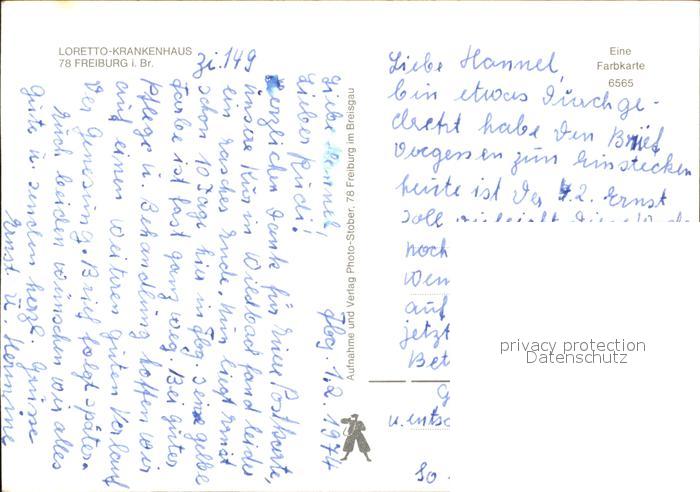 LORETTO-KRANKENHAUS
78 FREIBURG i. Br.
Zi. 149
Fbg. 1.2.1974
Liebe Hannel!
Lieber Rudi!
Herzlichen Dank für Eure Postkarte,
unsere Kur in Wildbad fand leider
ein rasches Ende. Nun liegt Ernst
schon 10 Tage hier in Fbg. Seine gelbe
Farbe ist fast ganz weg. Bei guter
Pflege u. Behandlung hoffen wir
auf einen weiteren guten Verlauf
der Genesung. Brief folgt später.
Euch beiden wünschen wir alles
Gute u. senden herzl. Grüsse
Ernst u. Hermine
Aufnahme und Verlag Photo-Stober, 78 Freiburg im Breisgau
Eine
Farbkarte
6565
Liebe Hannel,
bin etwas durchge-
dreht habe den Brief
vergessen zum Einstecken
heute ist der 4.2. Ernst
soll vielleicht diese Woche
noch
wen
auf
jetzt
Bet
u. entsc
So
privacy protection
Datenschutz